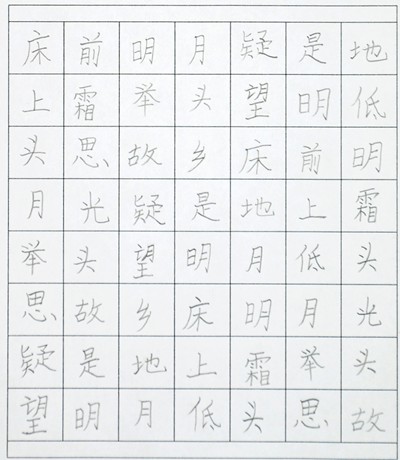 床前明月疑是地
上霜举头望明低
头思故乡床前明
月光疑是地上霜
举头望明月低头
思故乡床明月光
疑是地上霜举头
望明月低头思故